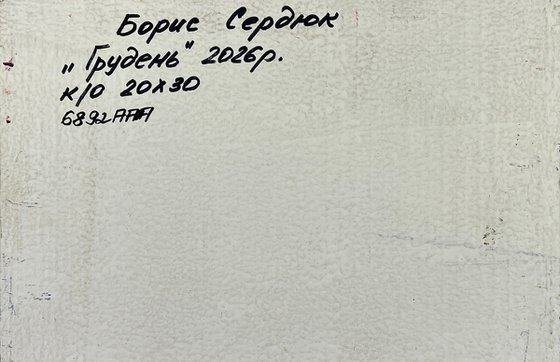 Борис Сердюк
„Грудень" 2026р.
к/о 20х30
6892ААА